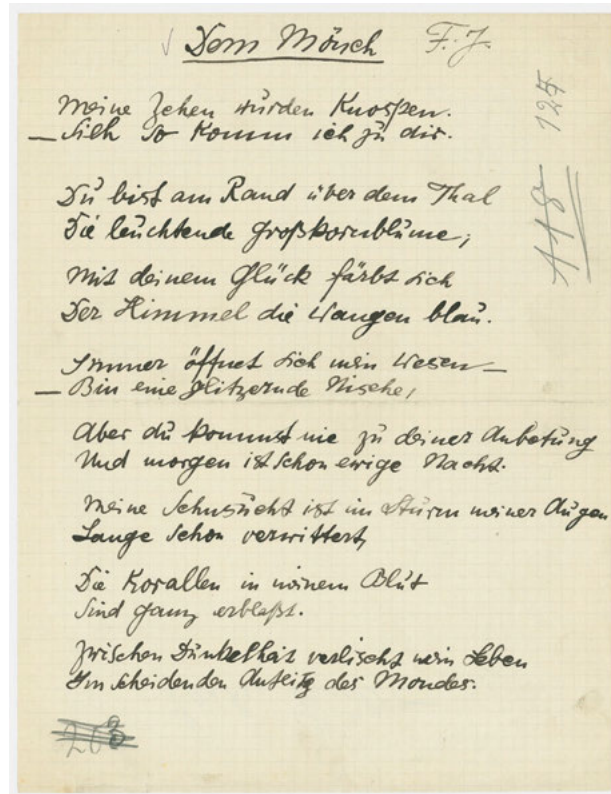 Dem Mönch F.J.
Meine Zehen wurden Knospen.
— Sieh so komm ich zu dir.
Du bist am Rand über dem Thal
Die leuchtende Großkornblume;
Mit deinem Glück färbt sich
Der Himmel die Wangen blau.
Immer öffnet sich mein Wesen —
— Bin eine glitzernde Nische,
Aber du kommst nie zu deiner Anbetung
Und morgen ist schon ewige Nacht.
Meine Sehnsucht ist im Sturm meiner Augen
Lange schon verwittert,
Die Korallen in meinem Blut
Sind ganz erblaßt.
Zwischen Dunkelheit verlischt mein Leben
Im scheidenden Antlitz des Mondes.
118